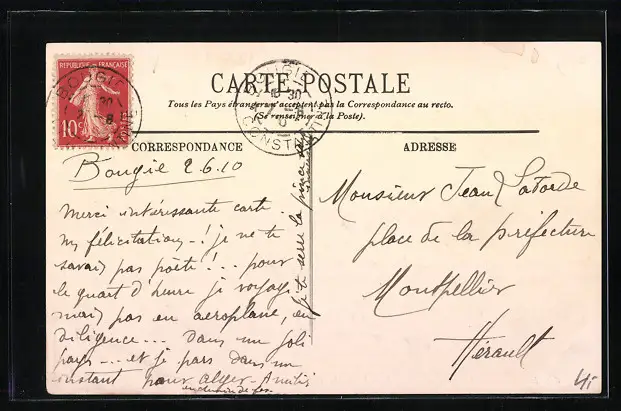 REPUBLIQUE FRANÇAISE
10c
POSTES
BOUGIE
CONSTANTINE
CARTE POSTALE
Tous les Pays étrangers n'acceptent pas la Correspondance au recto.
(Se renseigner à la Poste).
CORRESPONDANCE
Bougie 2.6.10
Merci intéressante carte.
my félicitations - ! je ne te
savais pas poète ! .. pour
le quart d'heure je voyage
mais pas en aeroplane, en
diligence ... dans un joli
pays ... et je pars dans un
instant pour Alger. Amitiés
en chemin de fer
je te serre la
ADRESSE
Monsieur Jean
place de la préfecture
Montpellier
Hérault